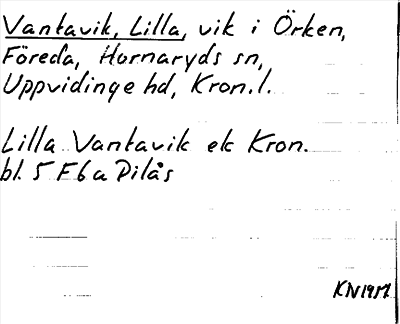 Vantavik, Lilla, vik i Örken,
Föreda, Hornaryds sn,
Uppvidinge hd, Kron.l.
Lilla Vantavik ek Kron.
bl. 5 F6a Dilås